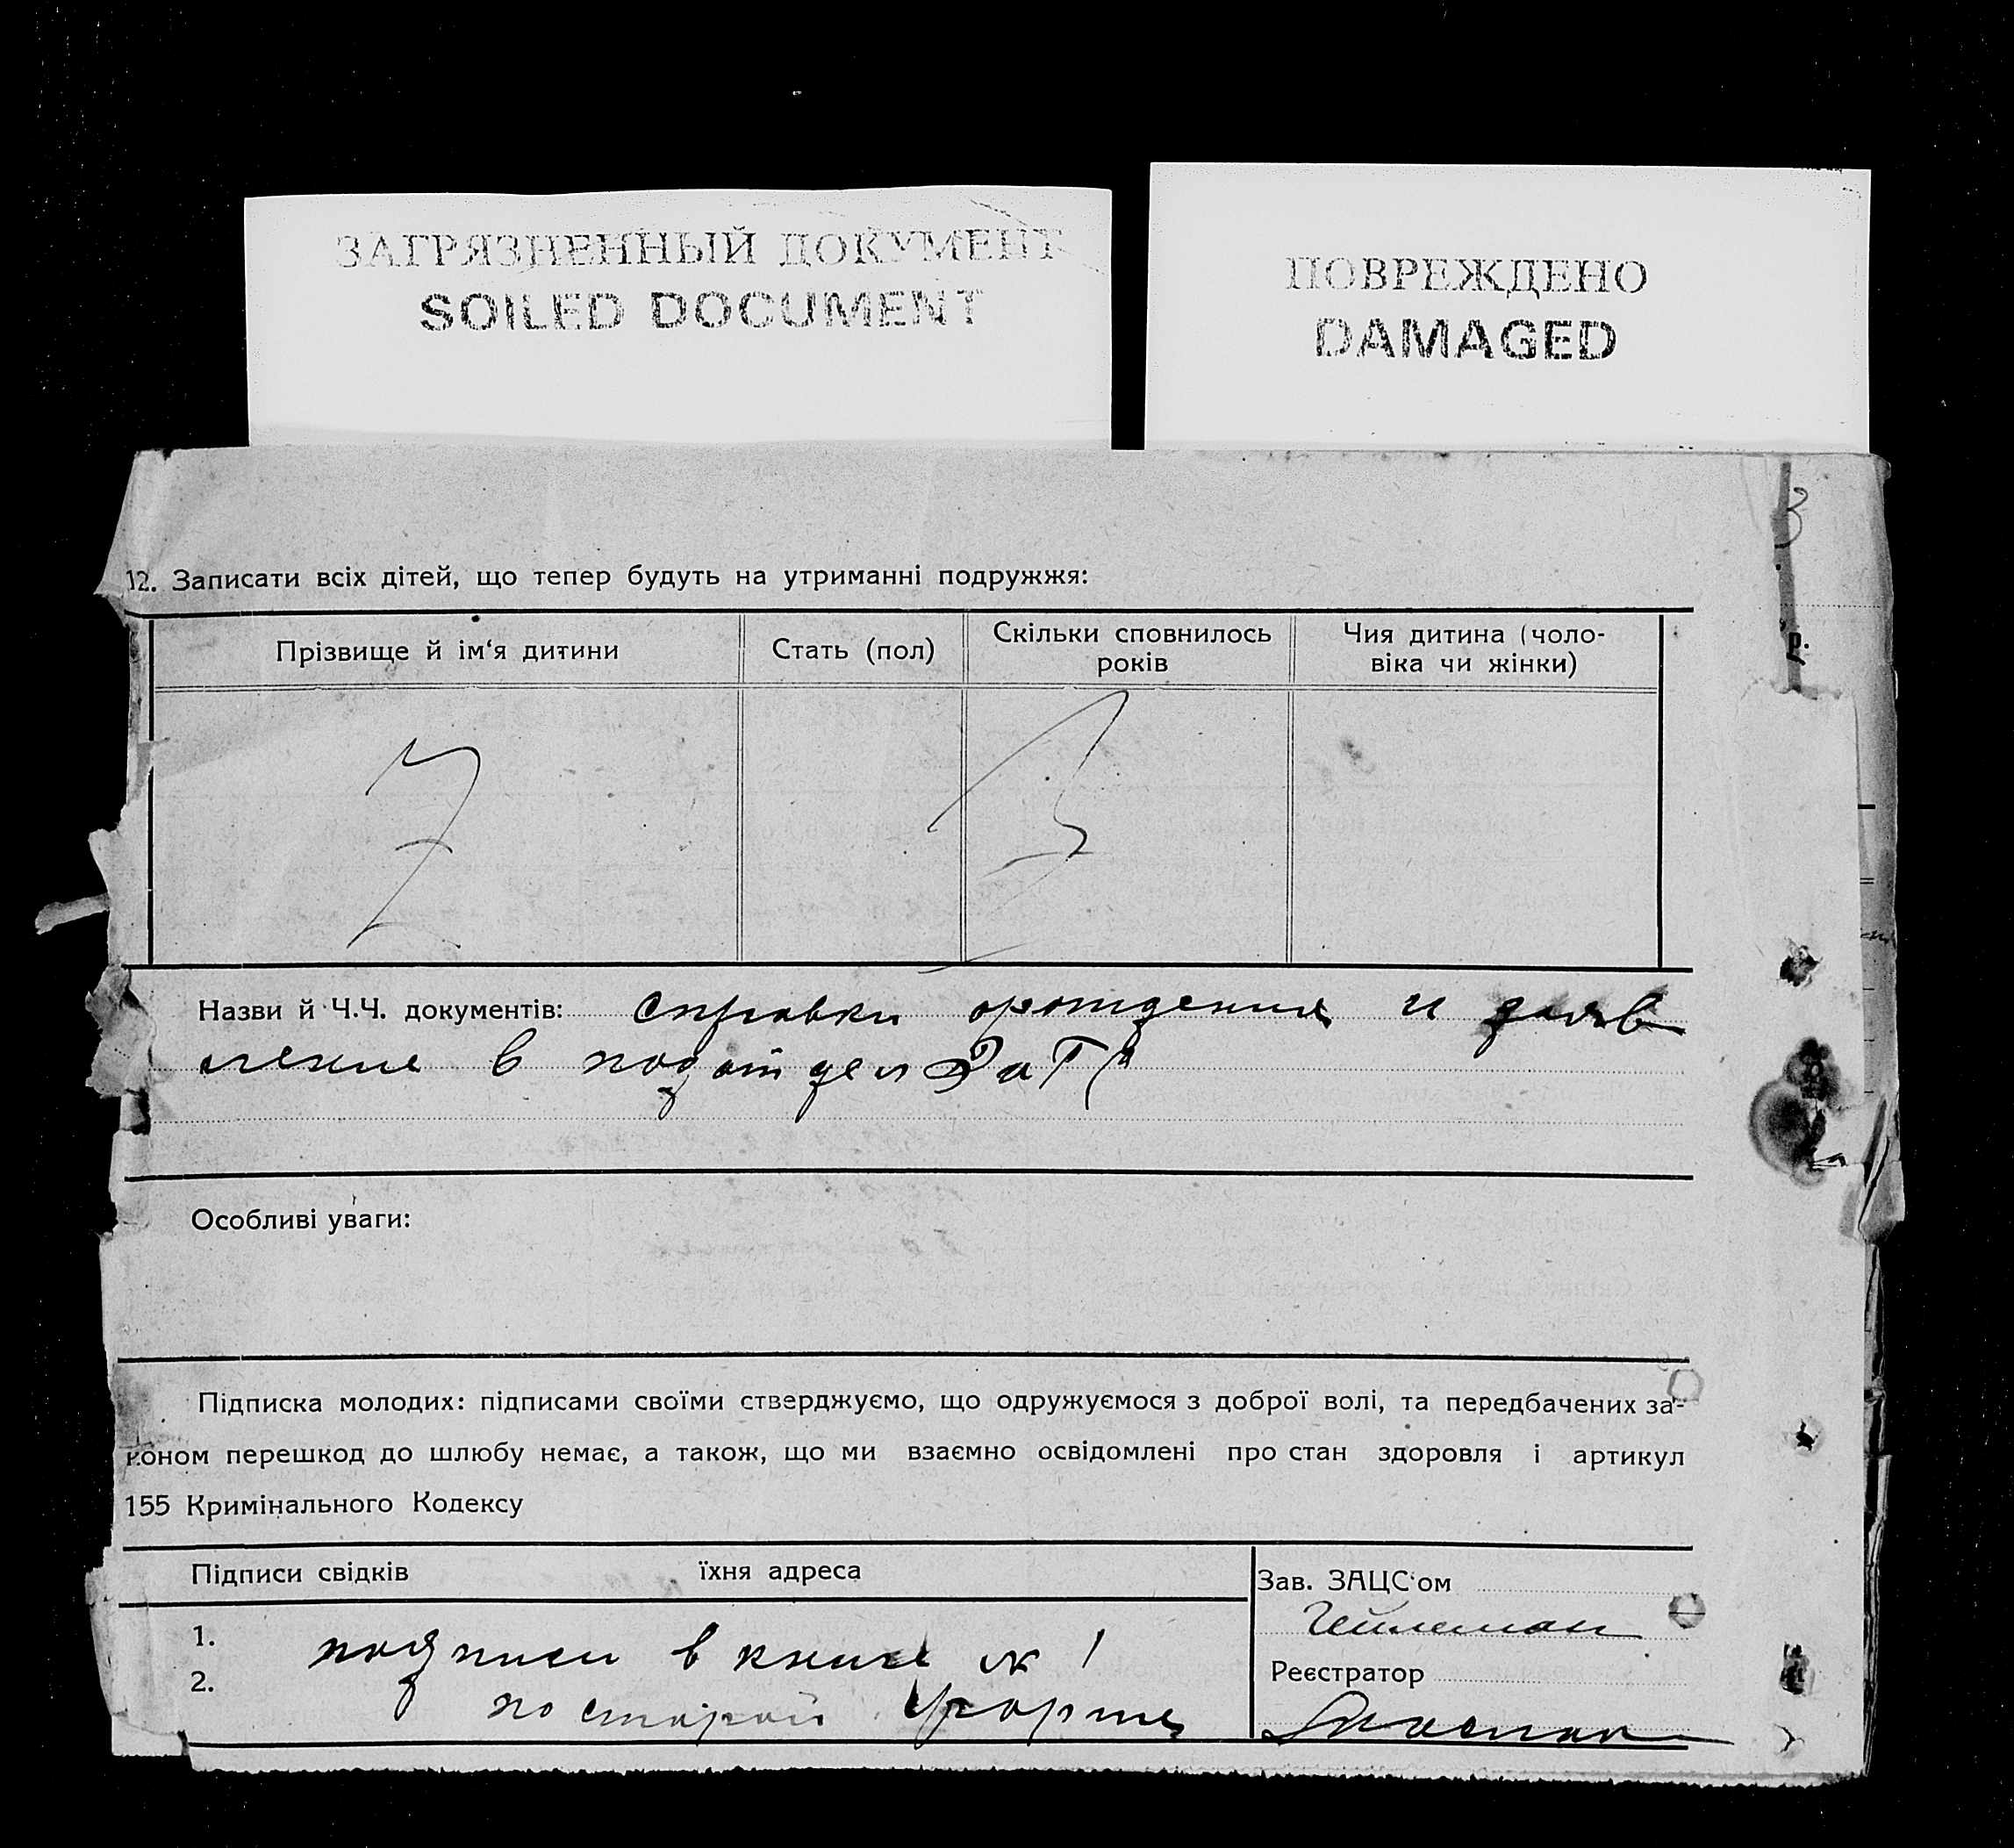 ЗАГРЯЗНЕННЫЙ ДОКУМЕНТ
SOILED DOCUMENT
ПОВРЕЖДЕНО
DAMAGED
3
12. Записати всіх дітей, що тепер будуть на утриманні подружжя:
Прізвище й ім‘я дитини
Стать (пол)
Скільки сповнилось
років
Чия дитина (чоло-
віка чи жінки)
р.
Назви й Ч.Ч. документів: справки орождения и заяв
ление в подотдел ЗаГс
Особливі уваги:
Підписка молодих: підписами своїми стверджуємо, що одружуємося з доброї волі, та передбачених за-
коном перешкод до шлюбу немає, а також, що ми взаємно освідомлені про стан здоровля і артикул
155 Кримінального Кодексу
Підписи свідків їхня адреса
Зав. ЗАЦС‘ом
1.
подписи в книге № 1
2.
по старой форме
Реєстратор